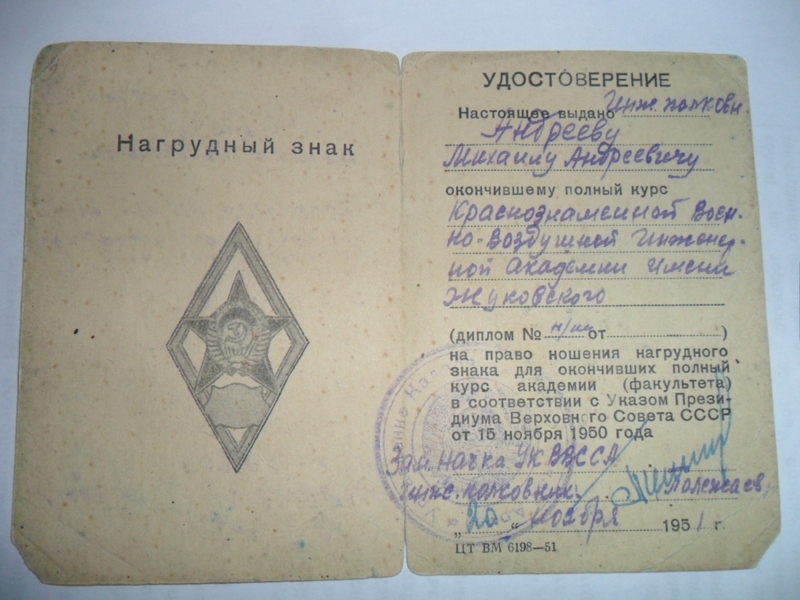 Нагрудный знак
УДОСТОВЕРЕНИЕ
Настоящее выдано Инж. полковн.
Андрееву
Михаилу Андреевичу
окончившему полный курс
Краснознаменной Воен-
но-Воздушной Инженер-
ной Академии имени
Жуковского
(диплом № н/им от )
на право ношения нагрудного
знака для окончивших полный
курс академии (факультета)
в соответствии с Указом Прези-
диума Верховного Совета СССР
от 15 ноября 1950 года
Зам. Нач-ка УК ВВС СА
инж. полковник Полежаев
„20“ ноября 1951 г.
ЦТ ВМ 6198—51